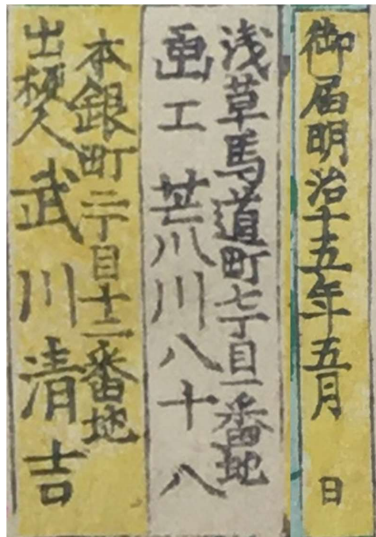 御届明治十五年五月 日
浅草馬道町七丁目一番地
画工 荒川八十八
本銀町二丁目十二番地
出板人 武川清吉